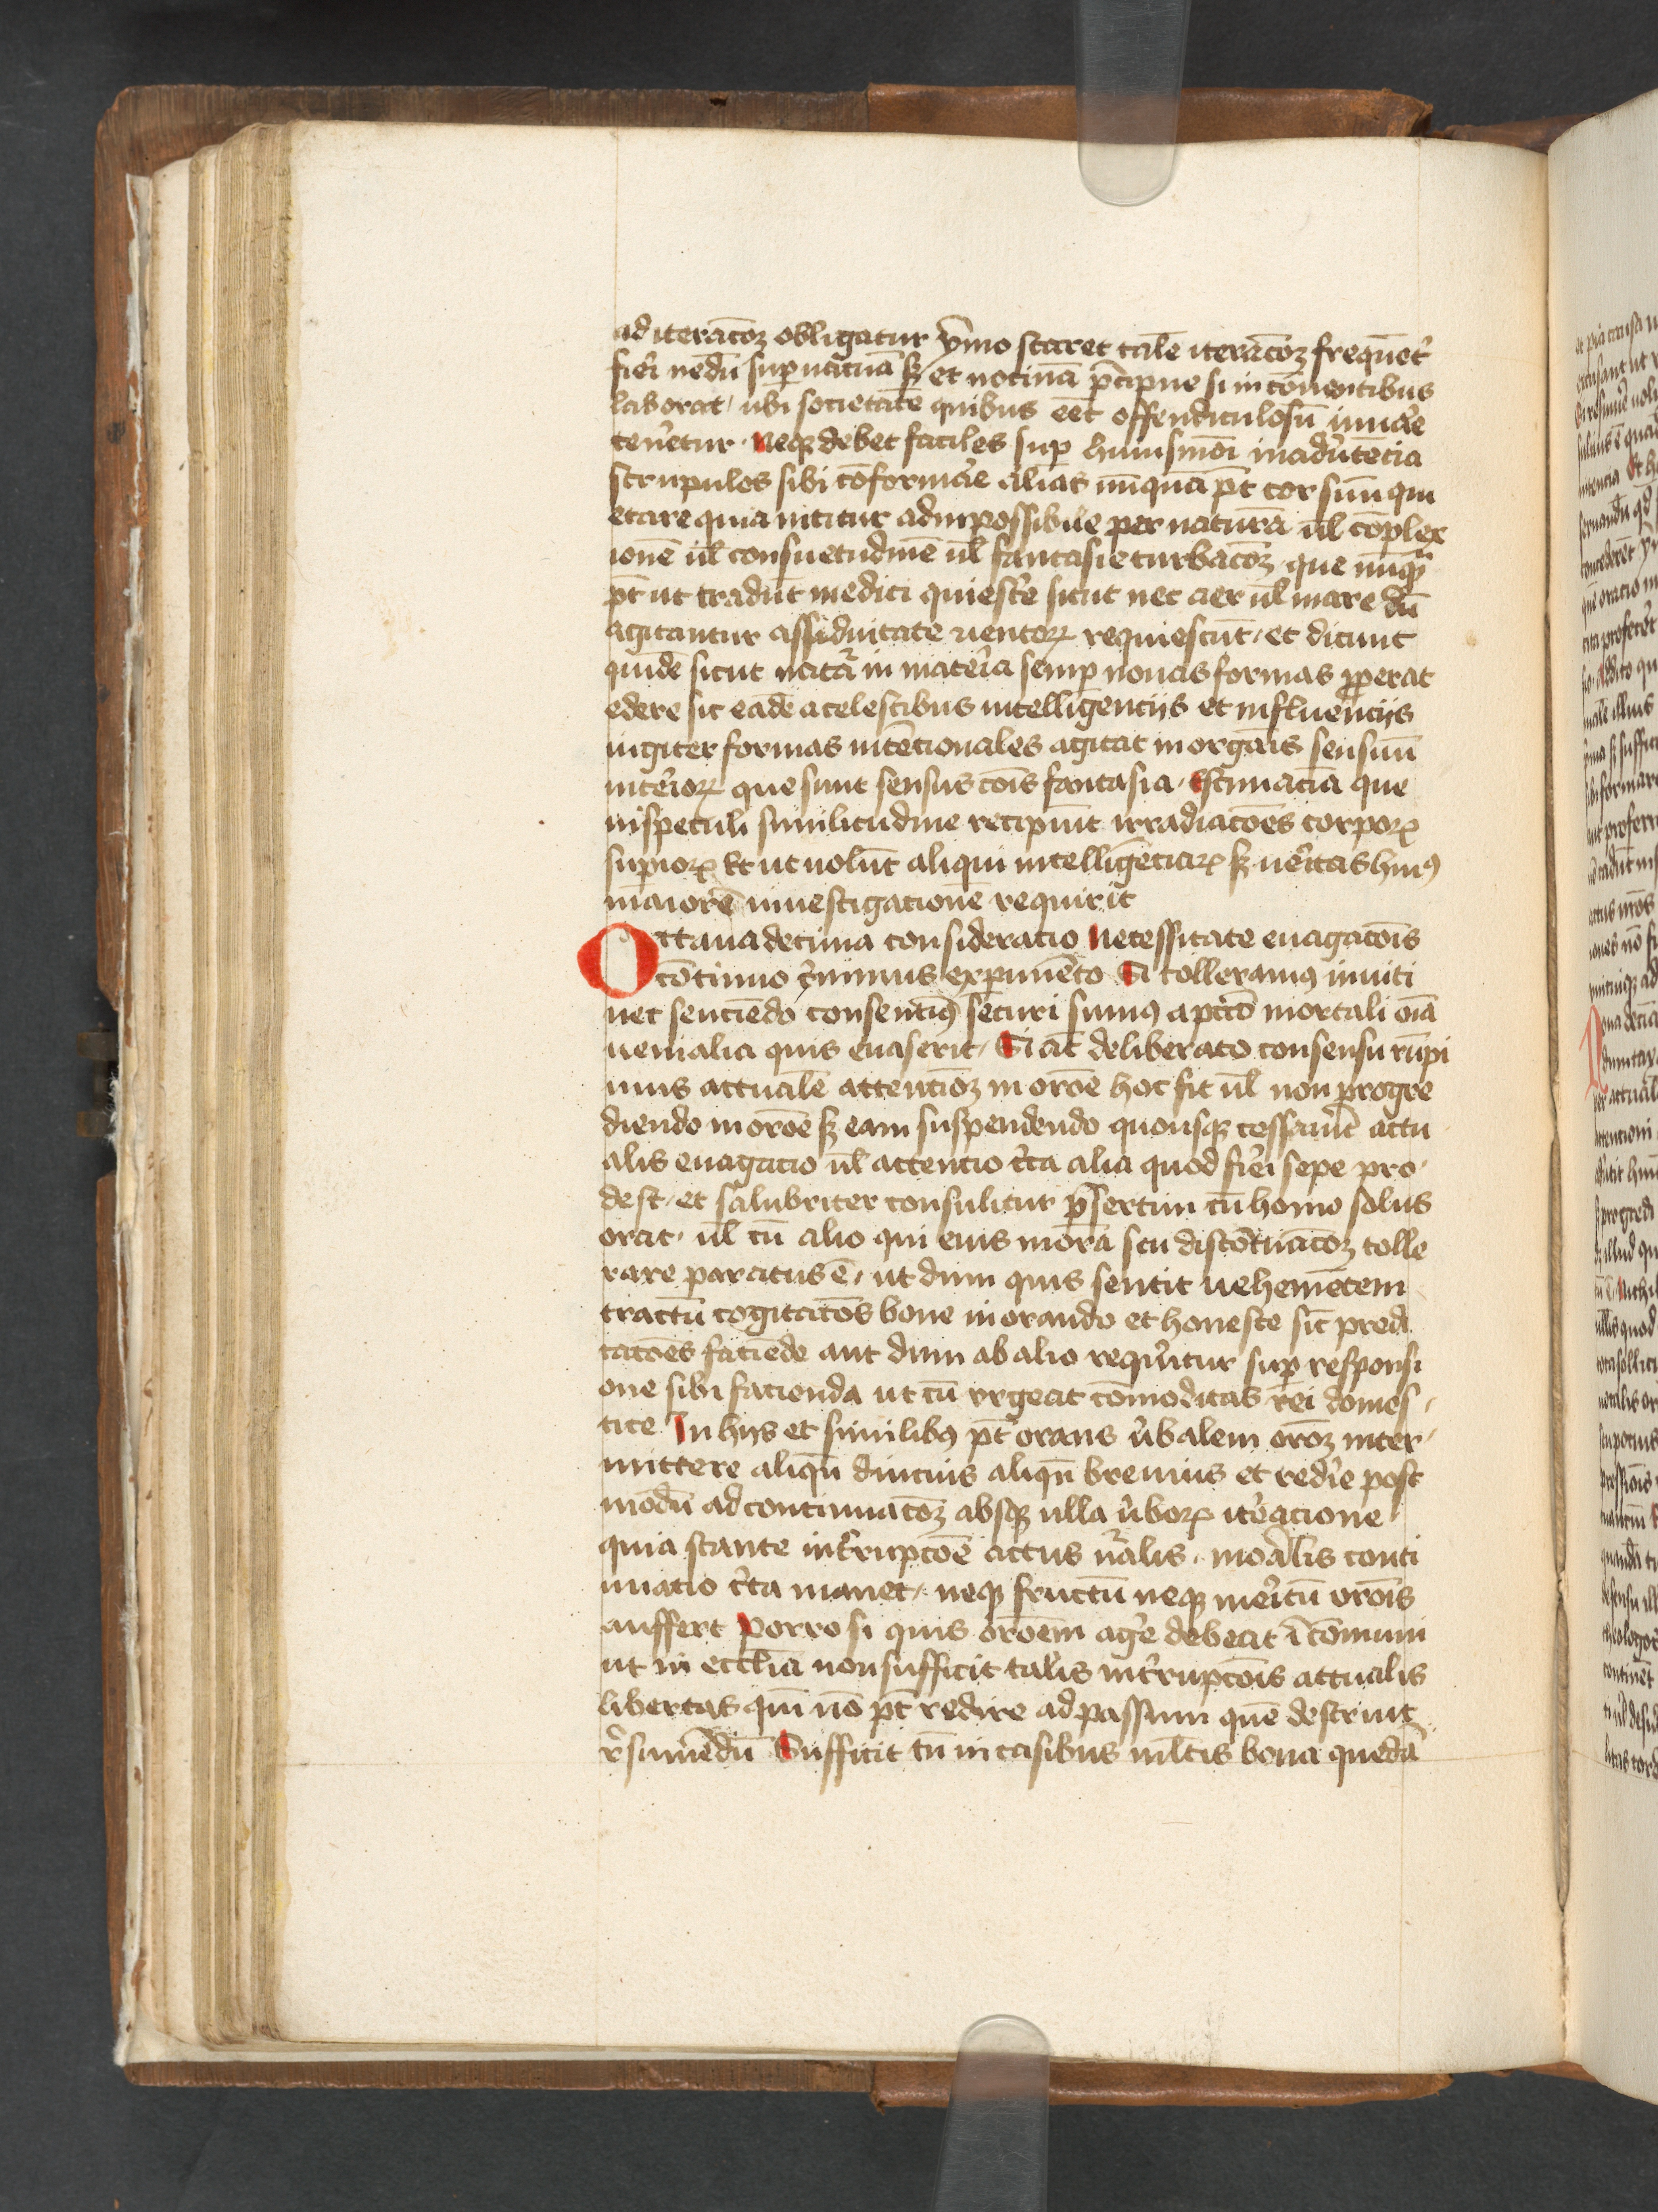 ad iteracōꝫ obligatur ẏmo staret talē iteracōꝫ frequēt᷑
fieri nedū suꝑuacuā sꝫ et nociuā p̄cipue si in cōuentibus
laborat / ubi societatē quibus eēt offendiculosū iuuare
tenetur · Neqꝫ debet faciles suꝑ huiusmōi inadu᷑tēcia
scrupulos sibi cōformare alias nūquā pt̄ cor suū qui
etare quia nititur ad inpossibile per naturā ul̄ cōplex
ionē ul̄ consuetudinē ul̄ fantasie turbacōꝫ que nūqꝫ
pt̄ ut tradūt medici quiesc᷑e sicut nec aer ul̄ mare dū
agitantur assiduitate uentoꝝ requiescūt / et dicunt
quidē sicut nat᷑a in mat᷑ia semꝑ nouas formas ꝓperat
edere sic eadē a celestibus intelligenciis et influenciis
iugiter formas intēcionales agitat in orgāis sensuū
int᷑ioꝝ que sunt sensus cōis fantasia · Estimacīa que
in speculi similitudine recipiūt irradiacōes corpoꝝ
suꝑioꝝ Et ut uolūt aliqui intelligēciaꝝ sꝫ ue᷑itas huiꝰ
maiorē inuestigationē requirit
Octaua decima consideratio Necessitate euagacōis
cōtinuo c᷑nimus exꝑimēto Si tolleramꝰ inuiti
nec sentiēdo consentimꝰ securi sumꝰ a pctō mortali oīa
uenialia quis euaserit / Si aūt deliberato consensu rūpi
mus actualē attencōꝫ in orōe hoc fit ul̄ non progre
diendo in orōe sꝫ eam suspendendo quousqꝫ cessau᷑it actu
alis euagatio ul̄ attentio c᷑ca alia quod fieri sepe pro
dest / et salubriter consulitur p̄sertim cū homo solus
orat · ul̄ cū alio qui eius morā seu discōtuacōꝫ tolle
rare paratus ē / ut dum quis sentit uehemētem
tractū cogitacōs bone in orando et honeste sic̄ predi
cacōes faciēde aut dum ab alio requi᷑itur suꝑ responsi
one sibi facienda ut cū vrgeat cōmoditas rei domes
tice In hijs et similibꝰ pt̄ orans u᷑balem orōꝫ inter
mittere aliqn̄ diucius aliqn̄ breuius et redi᷑e post
modū ad continuacōꝫ absqꝫ ulla u᷑boꝝ ite᷑acione
quia stante int᷑rupcōe actus n᷑alis · moralis conti
nuatio c᷑ta manet / neqꝫ fructū neqꝫ me᷑itū orōis
auffert Porro si quis orōem age᷑ debeat ī cōmuni
ut in ecclia non sufficit talis int᷑rupcōis actualis
libertas qm̄ nō pt̄ redire ad passum quē deseruit
r᷑sumēdū Sufficit tn̄ in casibus ml̄tis bona quedā